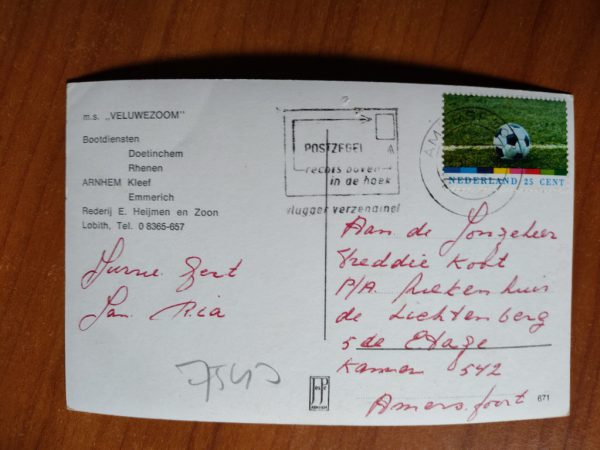 m.s. „VELUWEZOOM"
Bootdiensten
Doetinchem
Rhenen
ARNHEM Kleef
Emmerich
Rederij E. Heijmen en Zoon
Lobith, Tel. 0 8365-657
Gert
Jan Ria
POSTZEGEL
rechts boven
in de hoek
vlugger verzending!
AM
NEDERLAND 25 CENT
Aan de Jongeheer
Freddie Koot
P/A. Ziekenhuis
de Lichtenberg
5 de Etage
Kamer 542
Amersfoort
JP
671